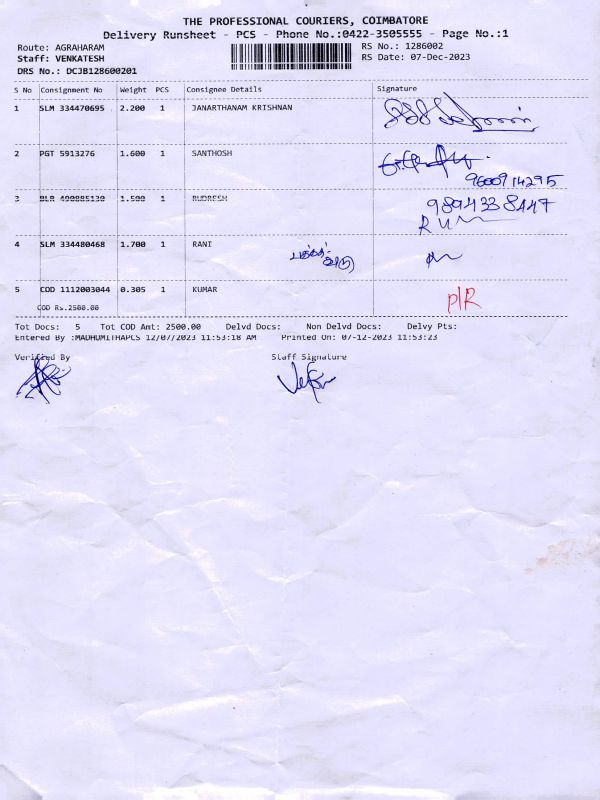 THE PROFESSIONAL COURIERS, COIMBATORE
Delivery Runsheet - PCS - Phone No.:0422-3505555 - Page No.:1
Route: AGRAHARAM RS No.: 1286002
Staff: VENKATESH RS Date: 07-Dec-2023
DRS No.: DCJB128600201
S No Consignment No Weight PCS Consignee Details Signature
1 SLM 334470695 2.200 1 JANARTHANAM KRISHNAN
2 PGT 5913276 1.600 1 SANTHOSH
9600914295
3 BLR 490885130 1.500 1 RUDRESH 9894338447
4 SLM 334480468 1.700 1 RANI
5 COD 1112003044 0.305 1 KUMAR P/R
COD Rs.2500.00
Tot Docs: 5 Tot COD Amt: 2500.00 Delvd Docs: Non Delvd Docs: Delvy Pts:
Entered By :MADHUMITHAPCS 12/07/2023 11:53:18 AM Printed On: 07-12-2023 11:53:23
Verified By Staff Signature